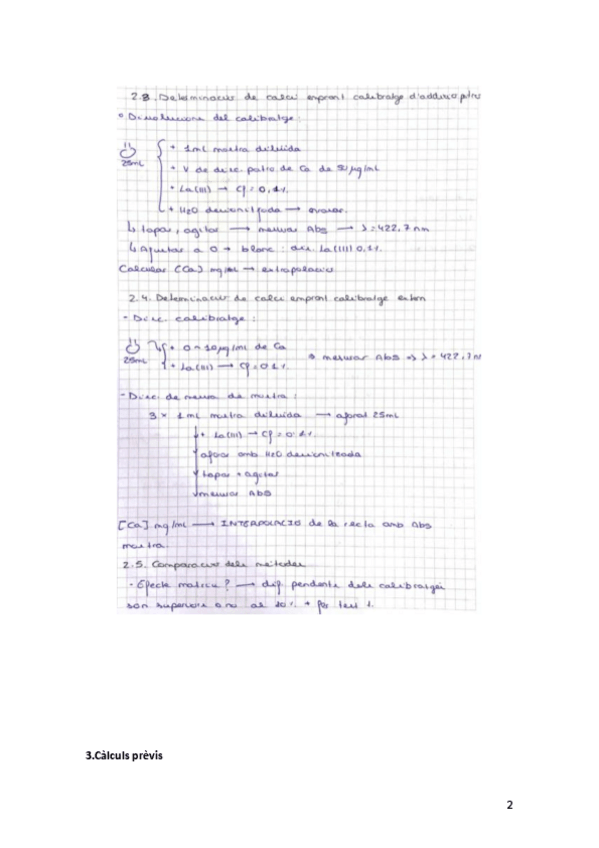 2.3. Determinació de calci emprant calibratge d'addició pdrs
• Dissolucions del calibratge:
+ 1mL mostra diluïda
25mL + V de dissc. patró de Ca de 50 µg/mL
+ La(III) → Cf = 0,1%
+ H2O desionitzada → avasar.
↳ tapar, agitar → mesurar Abs → λ=422,7nm
↳ Ajustar a 0 → blanc: dis. La(III) 0,1%
Calcular [Ca] mg/mL → extrapolació
2.4. Determinació de calci emprant calibratge extern
- Disc. calibratge:
+ 0-10µg/mL de Ca
25mL + La(III) → Cf = 0.1% → mesurar Abs ⇒ λ = 422,7n
- Disc. de mesura de mostra:
3 × 1 mL mostra diluïda → aforat 25mL
+ La(III) → Cf = 0.1%
aforar amb H2O desionitzada
tapar + agitar
mesurar Abs
[Ca] mg/mL → INTERPOLACIÓ de la recta amb Abs
mostra.
2.5. Comparació dels mètodes
- Efecte matriu? → dif pendents dels calibratges
són superiors o no al 10% + fer test t.
3.Càlculs prèvis
2